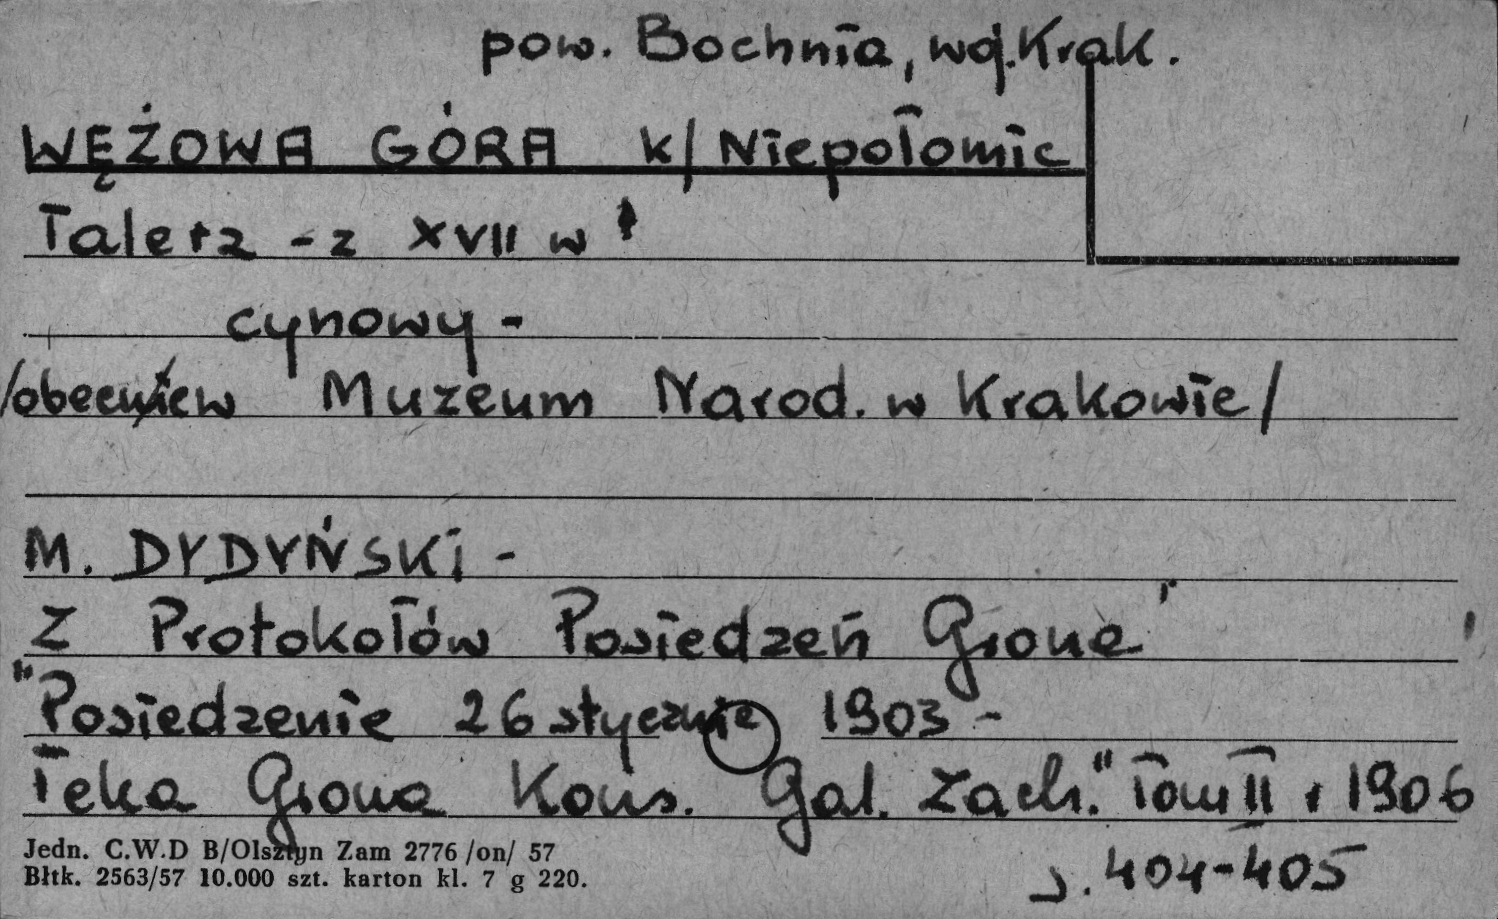 pow. Bochnia, woj. Krak.
WĘŻOWA GÓRA k/ Niepołomic
Talerz - z XVII w
cynowy -
/obecnie w Muzeum Narod. w Krakowie/
M. DYDYŃSKI -
Z Protokołów Posiedzeń Grona"
"Posiedzenie 26 stycznia 1903 -
Teka Grona Kons. Gal. Zach." Tom II r 1906
s. 404-405
Jedn. C.W.D B/Olsztyn Zam 2776 /on/ 57
Błtk. 2563/57 10.000 szt. karton kl. 7 g 220.